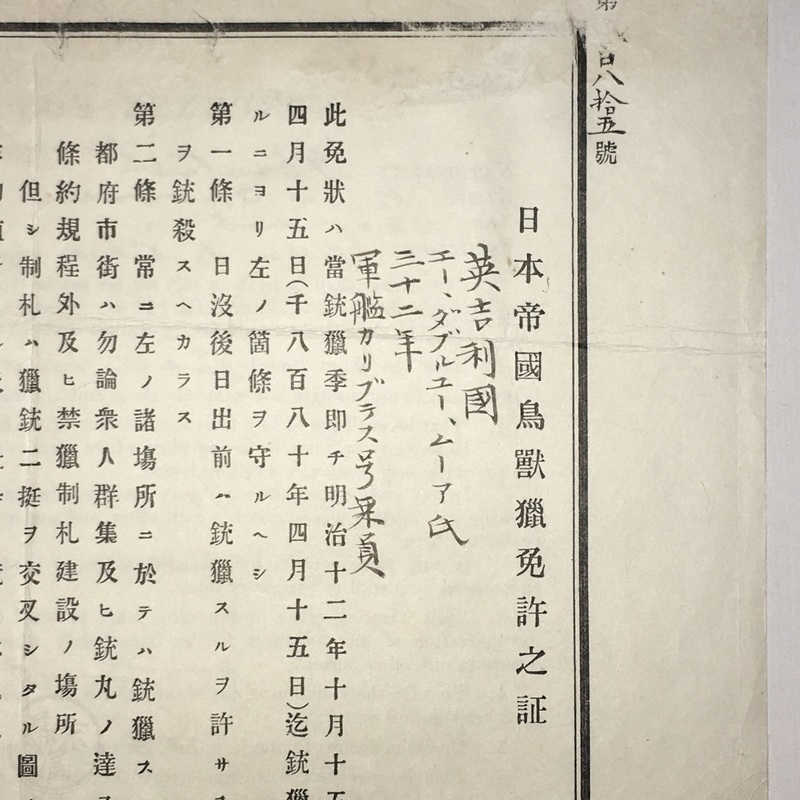 第 百八拾五號
日本帝國鳥獸獵免許之証
英吉利國
エー、ダブルユー、ムーア氏
三十二年
軍艦カリブラス号乗員
此免狀ハ當銃獵季即チ明治十二年十月十五
四月十五日(千八百八十年四月十五日)迄銃獵
ルニヨリ左ノ箇條ヲ守ルヘシ
第一條 日沒後日出前ハ銃獵スルヲ許サス
ヲ銃殺スヘカラス
第二條 常ニ左ノ諸塲所ニ於テハ銃獵ス
都府市街ハ勿論衆人群集及ヒ銃丸ノ達ス
條約規程外及ヒ禁獵制札建設ノ塲所
但シ制札ハ獵銃二挺ヲ交叉シタル圖